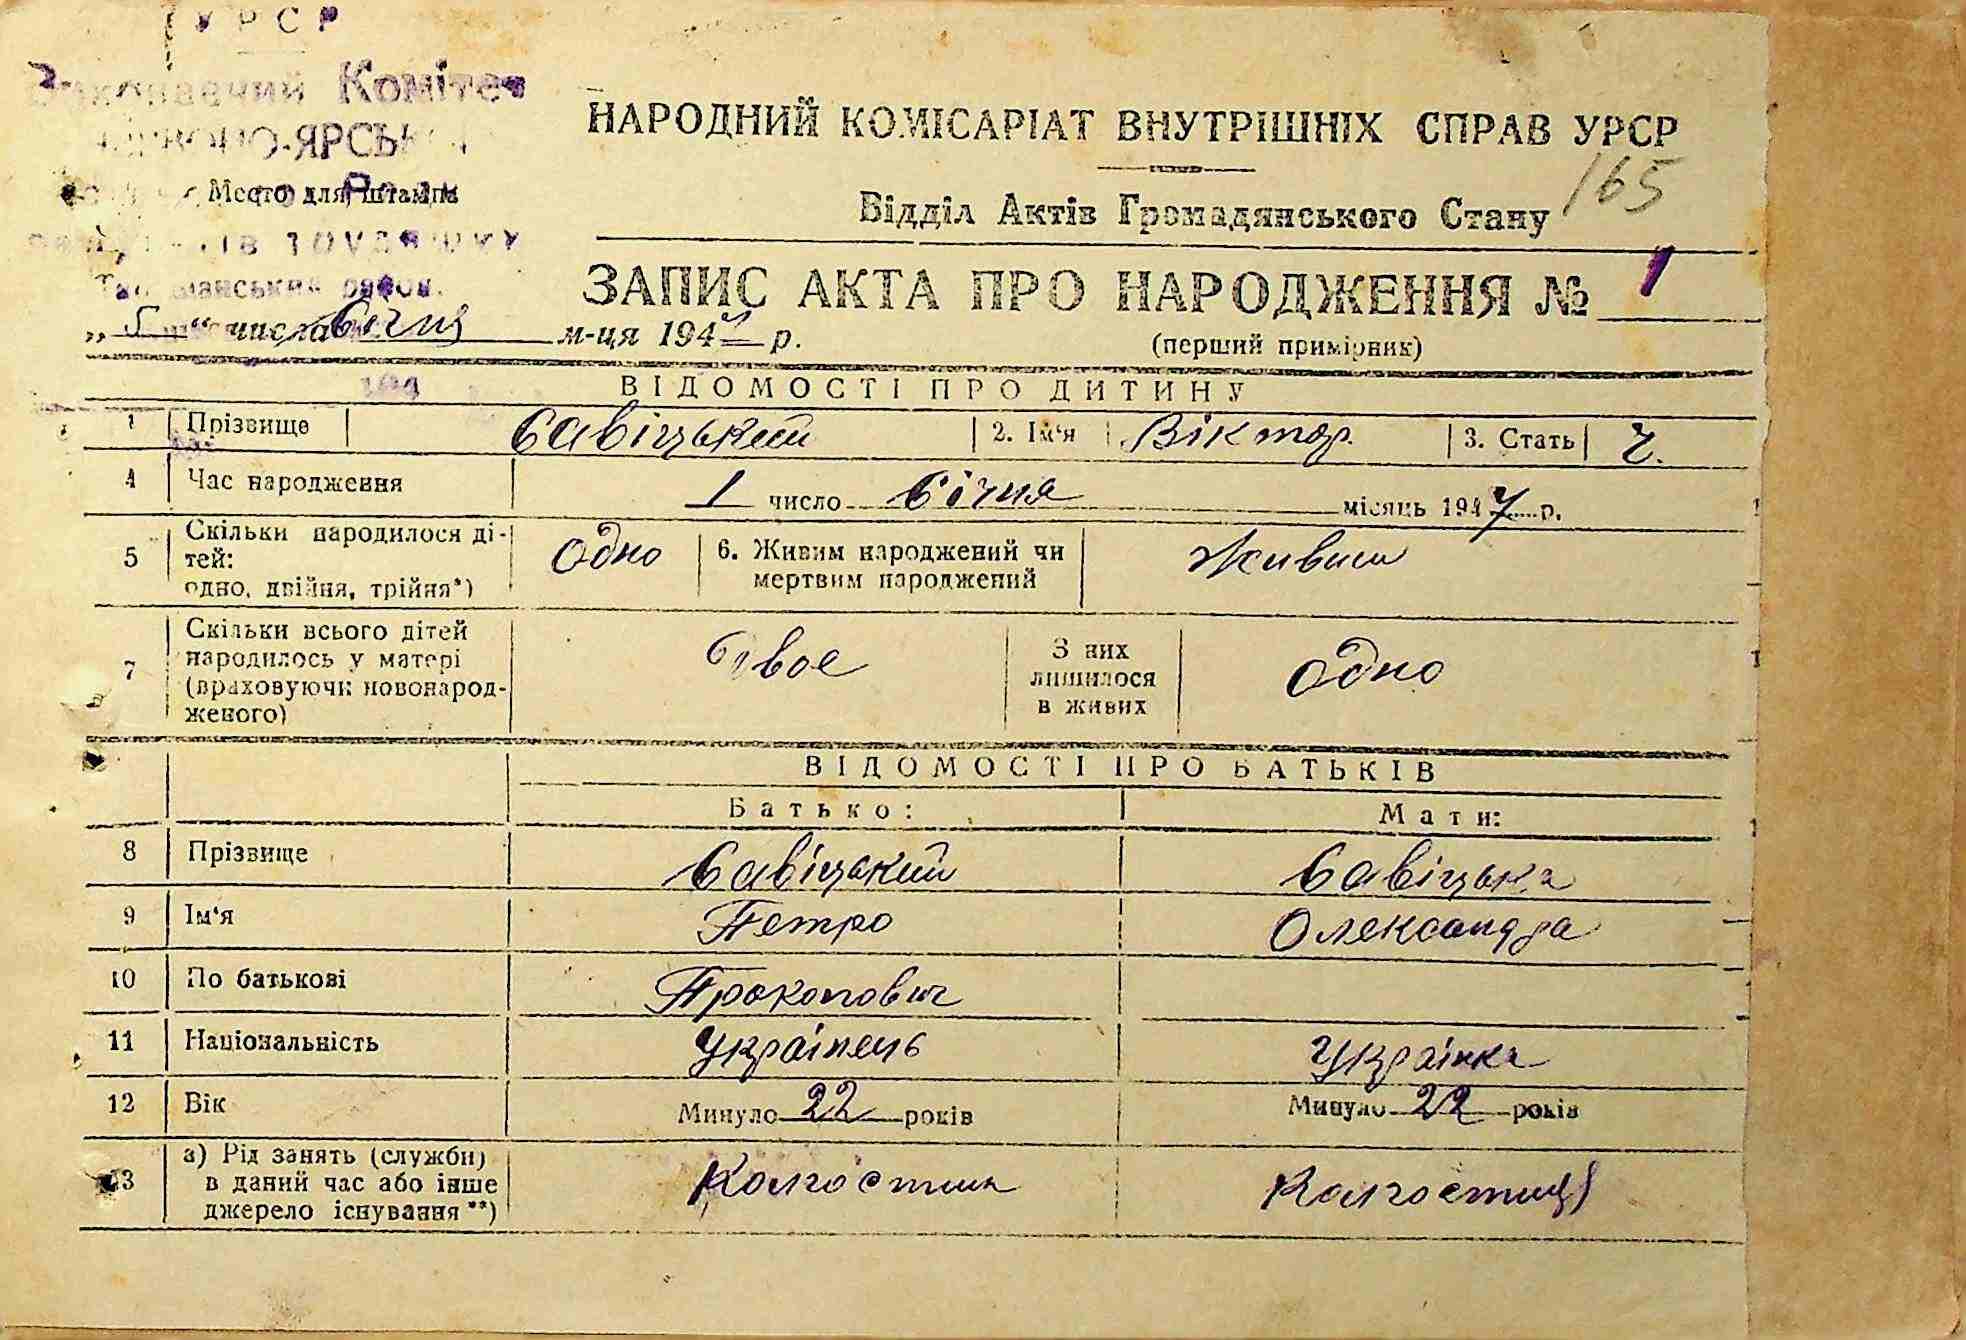 УРСР
Виконавчий Комітет
ЯРСЬК
Место для штампа
район.
„ 5 “ числа Січня м-ця 1947 р.
НАРОДНИЙ КОМІСАРІАТ ВНУТРІШНІХ СПРАВ УРСР
165
Відділ Актів Громадянського Стану
ЗАПИС АКТА ПРО НАРОДЖЕННЯ № 1
(перший примірник)
194
ВІДОМОСТІ ПРО ДИТИНУ
1 Прізвище Савіцький 2. Ім‘я Віктор. 3. Стать Ч.
4 Час народження 1 число Січня місяць 1947 р.
5 Скільки народилося ді-
тей:
одно, двійня, трійня*)
Одно
6. Живим народжений чи
мертвим народжений
Живим
7 Скільки всього дітей
народилось у матері
(враховуючи новонарод-
женого)
двоє
З них
лишилося
в живих
Одно
ВІДОМОСТІ ПРО БАТЬКІВ
Батько: Мати:
8 Прізвище Савіцький Савіцька
9 Ім‘я Петро Олександра
10 По батькові Прокопович
11 Національність Українець Українка
12 Вік Минуло 22 років Минуло 22 років
13 а) Рід занять (служби)
в даний час або інше
джерело існування**)
Колгоспник Колгоспниця